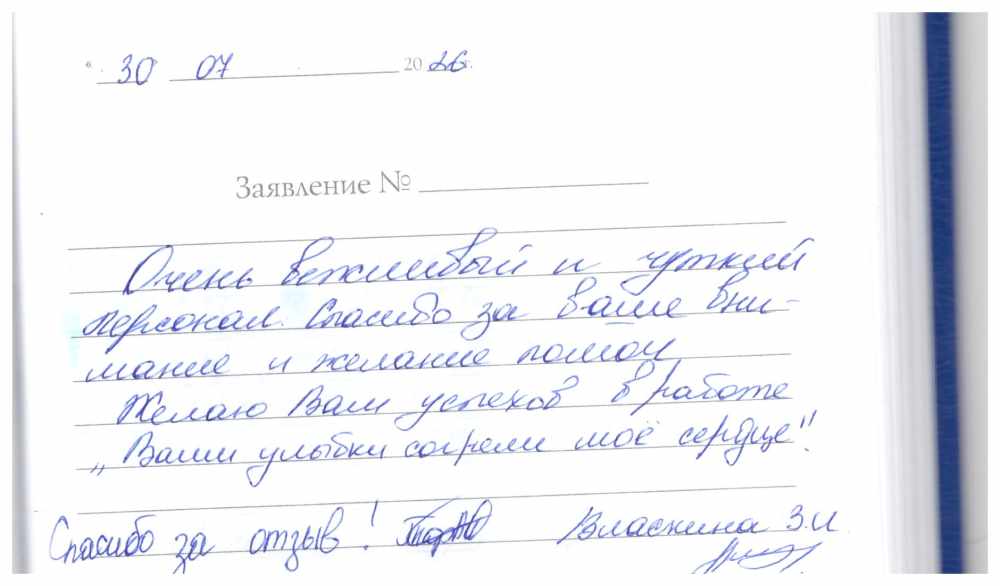 " 30 07 2026г.
Заявление №
Очень вежливый и чуткий
персонал. Спасибо за ваше вни-
мание и желание помочь
Желаю Вам успехов в работе
„Ваши улыбки согрели моё сердце"
Спасибо за отзыв! Власкина З.И.